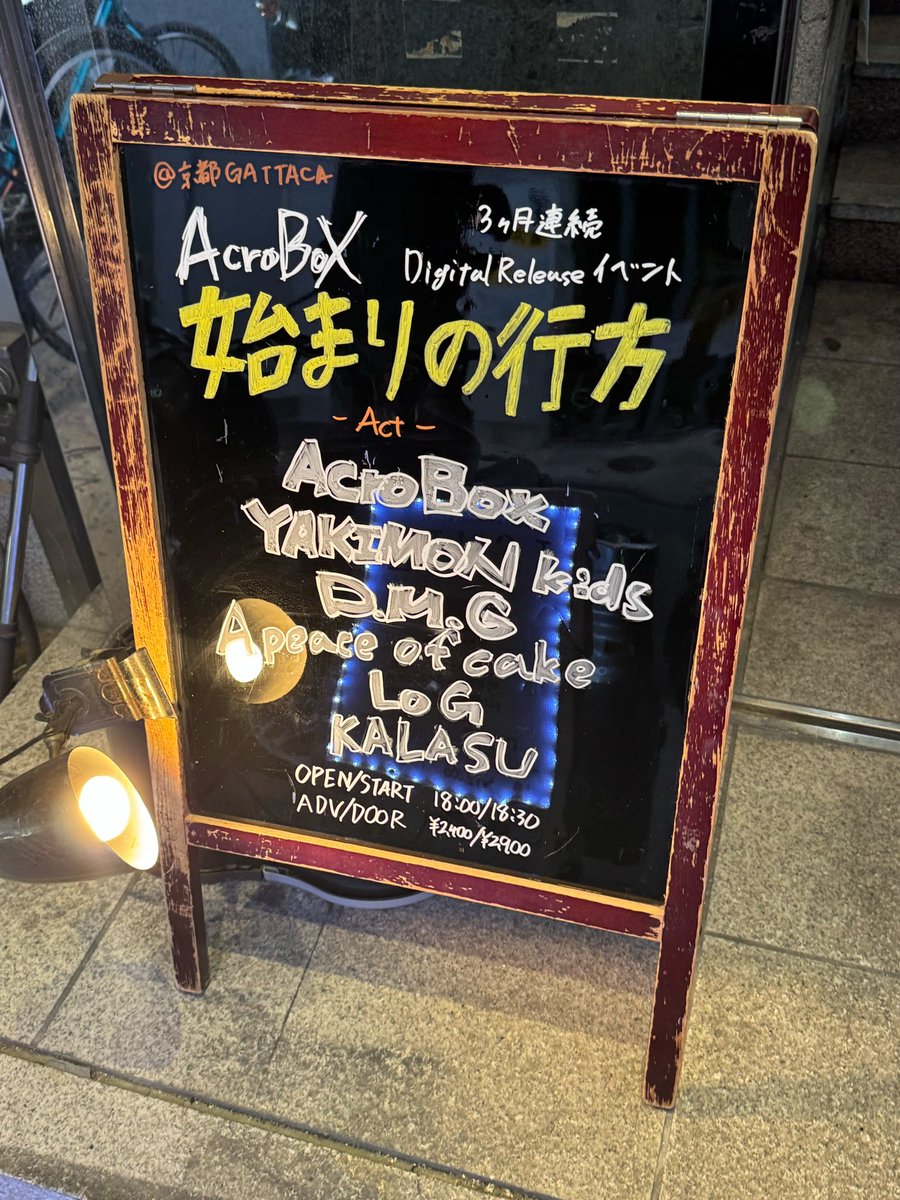 @京都GATTACA
AcroBoX
3ヶ月連続
Digital Release イベント
始まりの行方
- Act -
AcroBox
YAKIMON kids
D.M.G
A peace of cake
LoG
KALASU
OPEN/START 18:00/18:30
ADV/DOOR ¥2400/¥2900